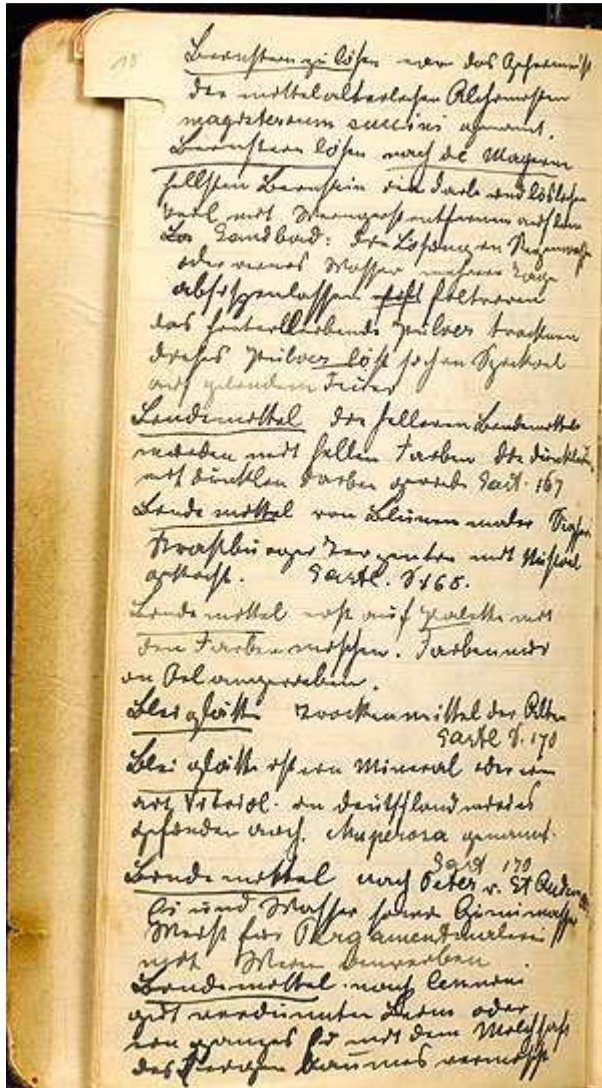 18
Bernstein zu lösen war das Geheimnis
der mittelalterlichen Alchemisten
magisterium succini genannt.
Bernstein lösen nach de Mayern
hellsten Bernstein die Farbe und löslichen
Teil mit Weingeist entfernen auf dem
Sandbad: die Lösung in Regenwasser
oder reines Wasser mehrere Tage
absitzenlassen filtrieren
das hinterbleibende Pulver trocknen
dieses Pulver löst sich in Spicköl
auf gelindem Feuer
Bindemittel die helleren Bindemittel
werden mit hellen Farben die dunklen
mit dunklen Farben 167
Bindemittel von Blumenmaler
Straßburger Terpentin mit
gekocht. S 168.
Bindemittel erst auf Palette mit
den Farben mischen. Farben nur
in Oel angerieben.
Bleiglätte Trockenmittel der Alten
S. 170
Bleiglätte ist ein Mineral oder ein
art Vitriol. in Deutschland wird es
gefunden auch genannt.
170
Bindemittel nach Peter v. St Audemar
Ei und Wasser sowie Gummiwasser
Meist für Pergamentmalerei
mit Wein
Bindemittel nach Cennini
gut verdünnter oder
ein ganzes Ei mit dem Milchsaft
des Feigen baumes vermischt